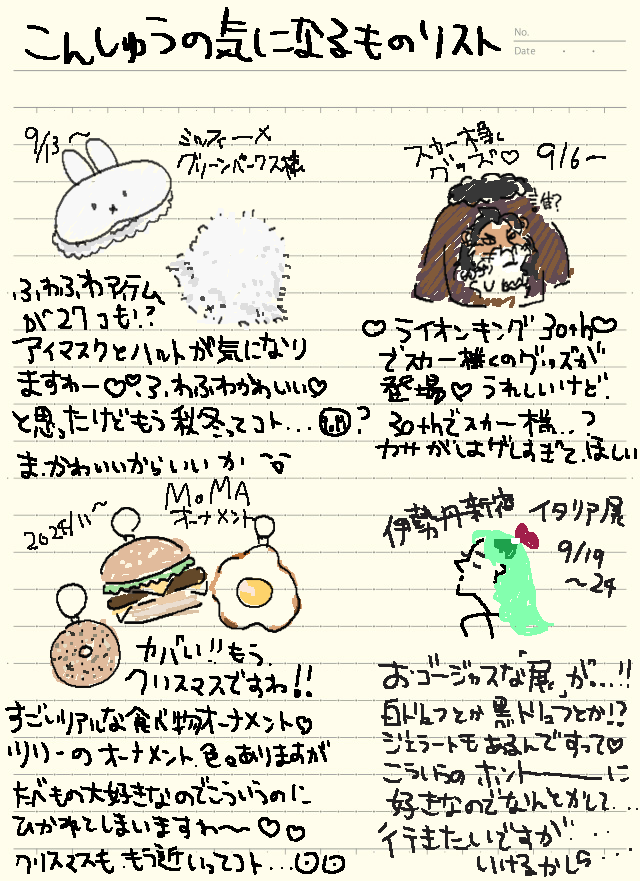 こんしゅうの気になるものリスト
No.
Date
9/13〜
ミッフィー×
グリーンパークス様
ふわふわアイテム
が27コも!?
アイマスクとハルトが気になり
ますわー♡♡ふわふわかわいい♡
と思ったけどもう秋冬ってコト...?
ま、かわいいからいいか
スカー様
グッズ♡
9/6〜
誰?
♡ライオンキング30th♡
でスカー様くのグッズが
登場♡うれしいけど、
30thでスカー様..?
カサがはげしすぎて、ほしい
2024/11〜
MoMA
オーナメント
ヤバい!!もう
クリスマスですわ!!
すごいリアルな食べ物オーナメント♡
ツリーのオーナメント色々ありますが
たべもの大好きなのでこういうのに
ひかれてしまいますわ〜♡♡
クリスマスも、もう近いってコト...
伊勢丹新宿
イタリア展
9/19
〜24
お、ゴージャスな「展」が...!!
白トリュフとか黒トリュフとか!?
ジェラートもあるんですって♡
こういうの ホントーーーに
好きなのでなんとかして...
イ行きたいですが....
いけるかしら